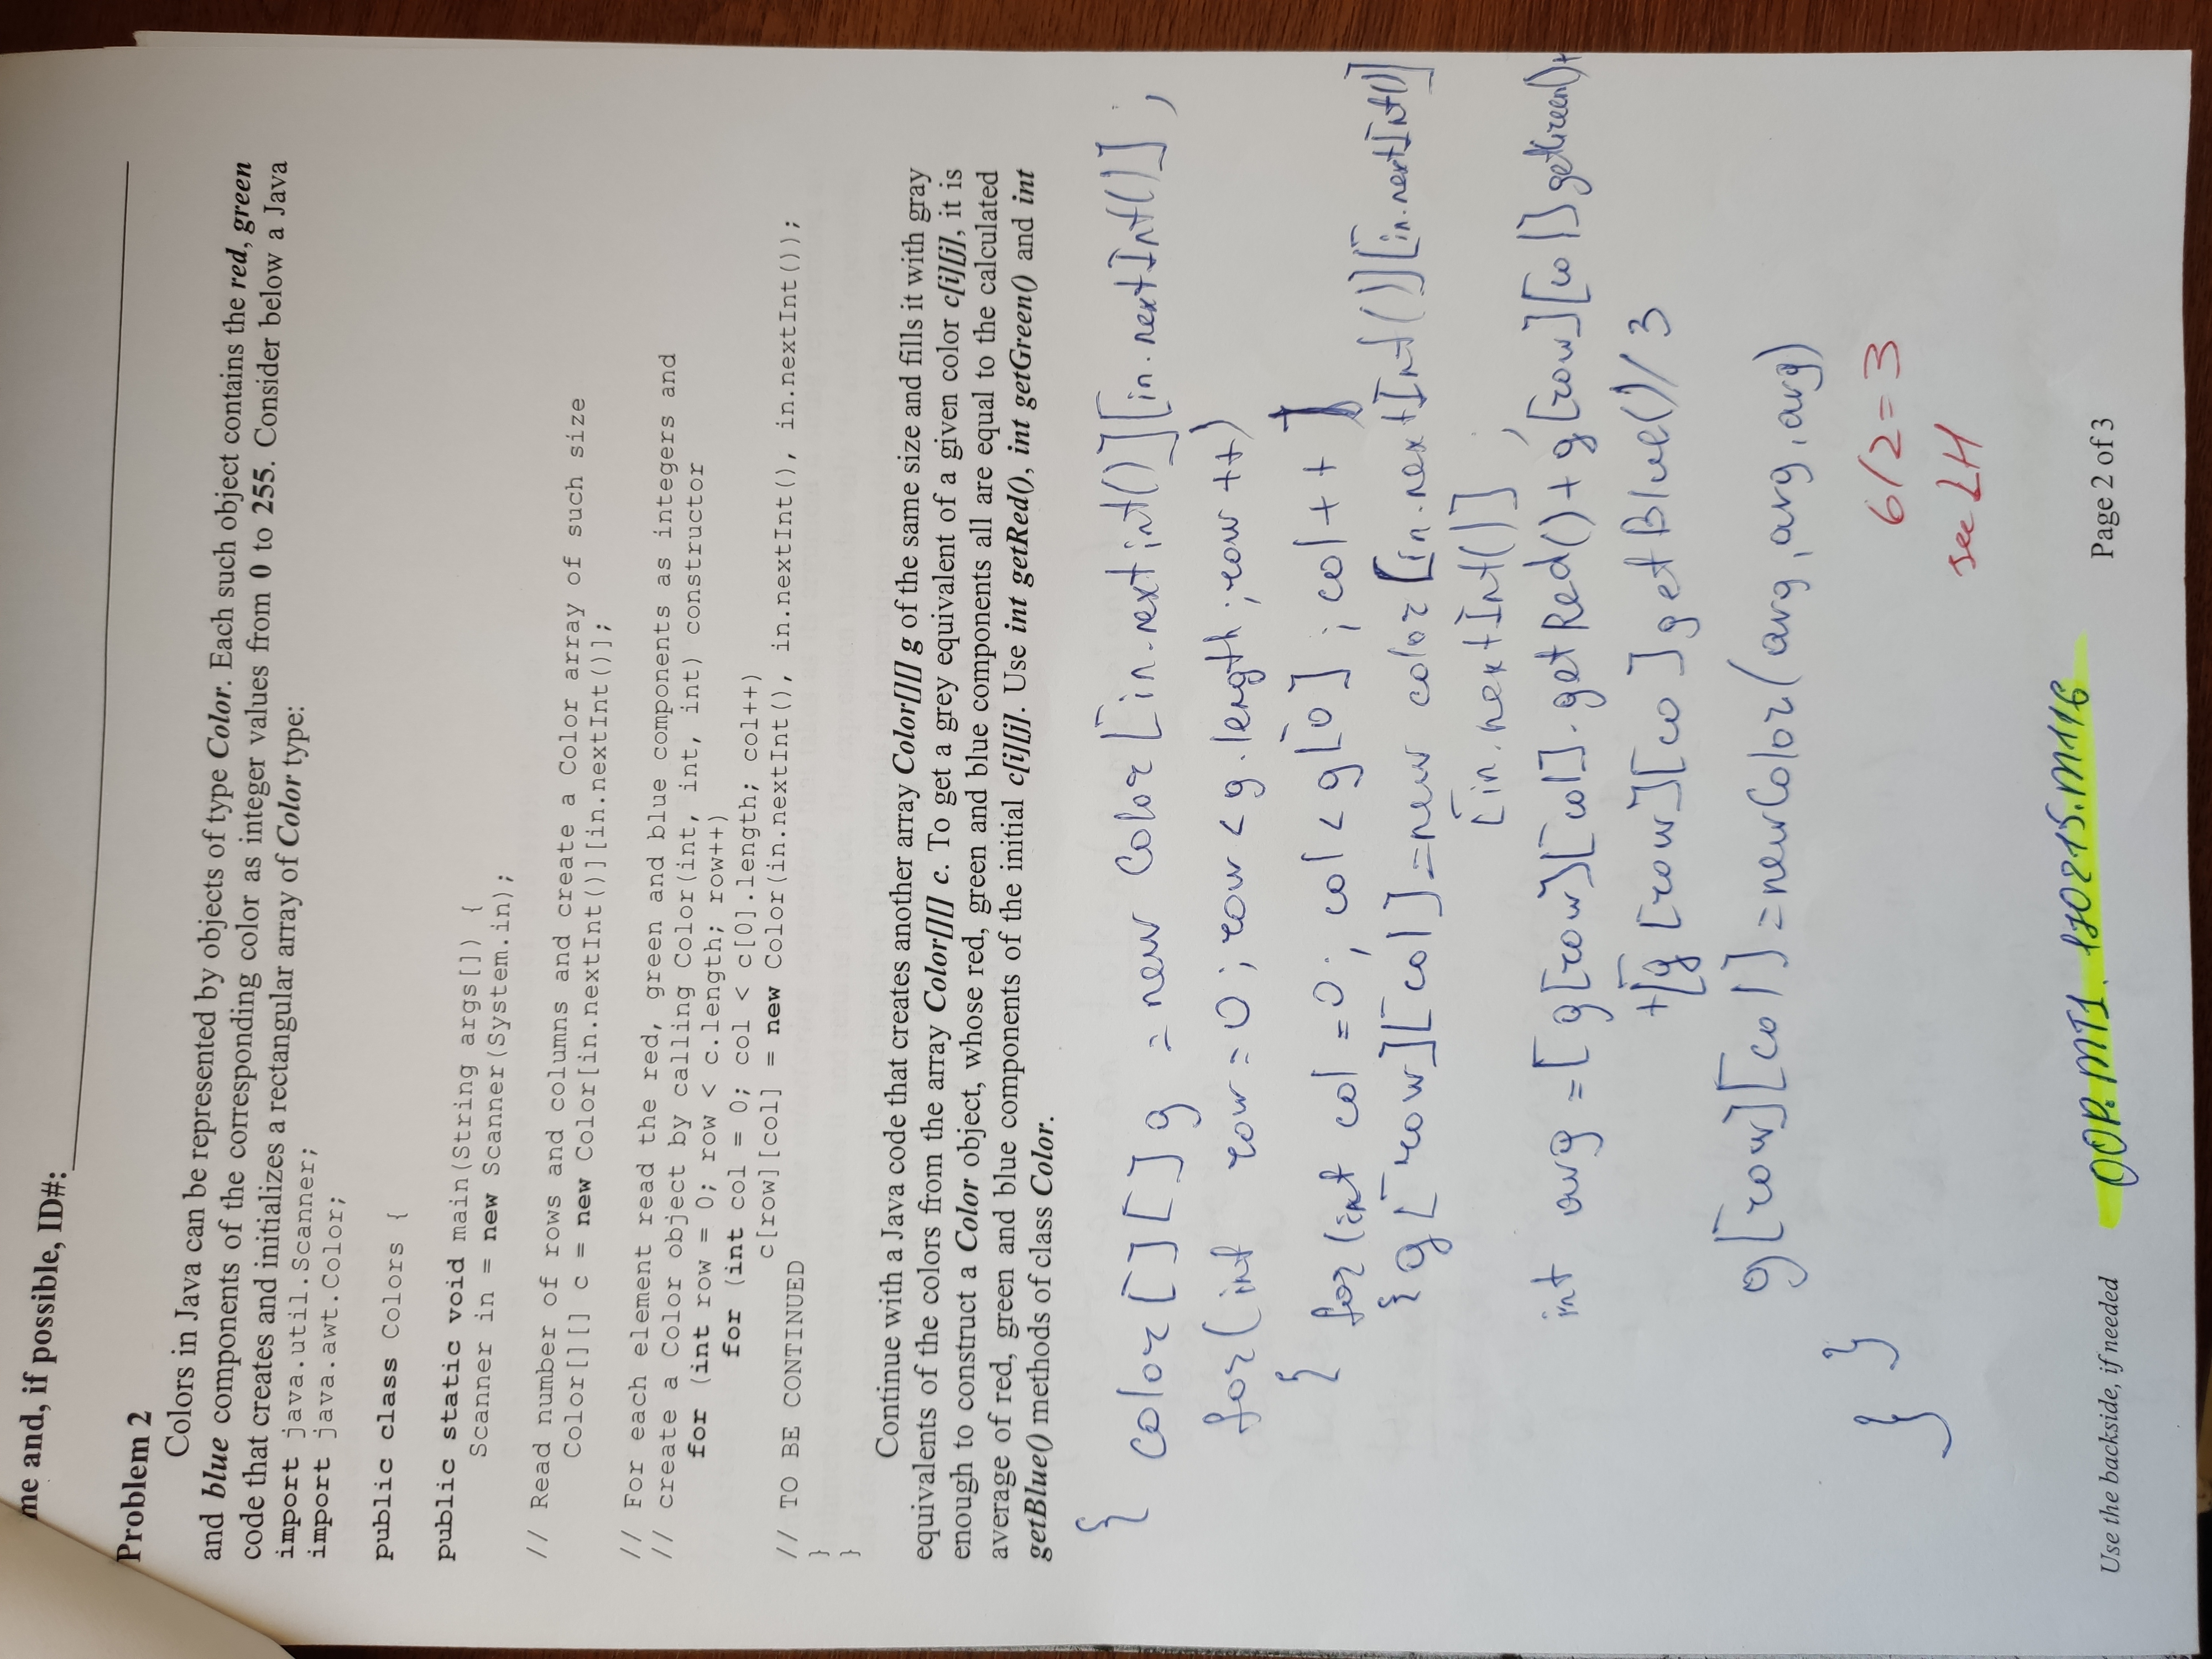 me and, if possible, ID#:
Problem 2
Colors in Java can be represented by objects of type Color. Each such object contains the red, green
and blue components of the corresponding color as integer values from 0 to 255. Consider below a Java
code that creates and initializes a rectangular array of Color type:
import java.util.Scanner;
import java.awt.Color;
public class Colors {
public static void main(String args[]) {
Scanner in = new Scanner(System.in);
// Read number of rows and columns and create a Color array of such size
Color[][] c = new Color[in.nextInt()][in.nextInt()];
// For each element read the red, green and blue components as integers and
// create a Color object by calling Color(int, int, int) constructor
for (int row = 0; row < c.length; row++)
for (int col = 0; col < c[0].length; col++)
c[row][col] = new Color(in.nextInt(), in.nextInt(), in.nextInt());
// TO BE CONTINUED
}
}
Continue with a Java code that creates another array Color[][] g of the same size and fills it with gray
equivalents of the colors from the array Color[][] c. To get a grey equivalent of a given color c[i][j], it is
enough to construct a Color object, whose red, green and blue components all are equal to the calculated
average of red, green and blue components of the initial c[i][j]. Use int getRed(), int getGreen() and int
getBlue() methods of class Color.
{ color[][] g = new Color[in.nextint()][in.nextInt()];
for(int row=0; row<g.length; row++)
{ for(int col=0; col<g[0]; col++]
{g[row][col]=new color[in.nextInt()][in.nextInt()]
[in.nextInt()];
int avg =[g[row][col].getRed()+g[row][col]getGreen()+
+[g[row][co]getBlue()/3
g[row][col]=newColor(avg,avg,avg)
} }
6/2=3
see LH
OOP.MT1. 170215.M116
Use the backside, if needed
Page 2 of 3